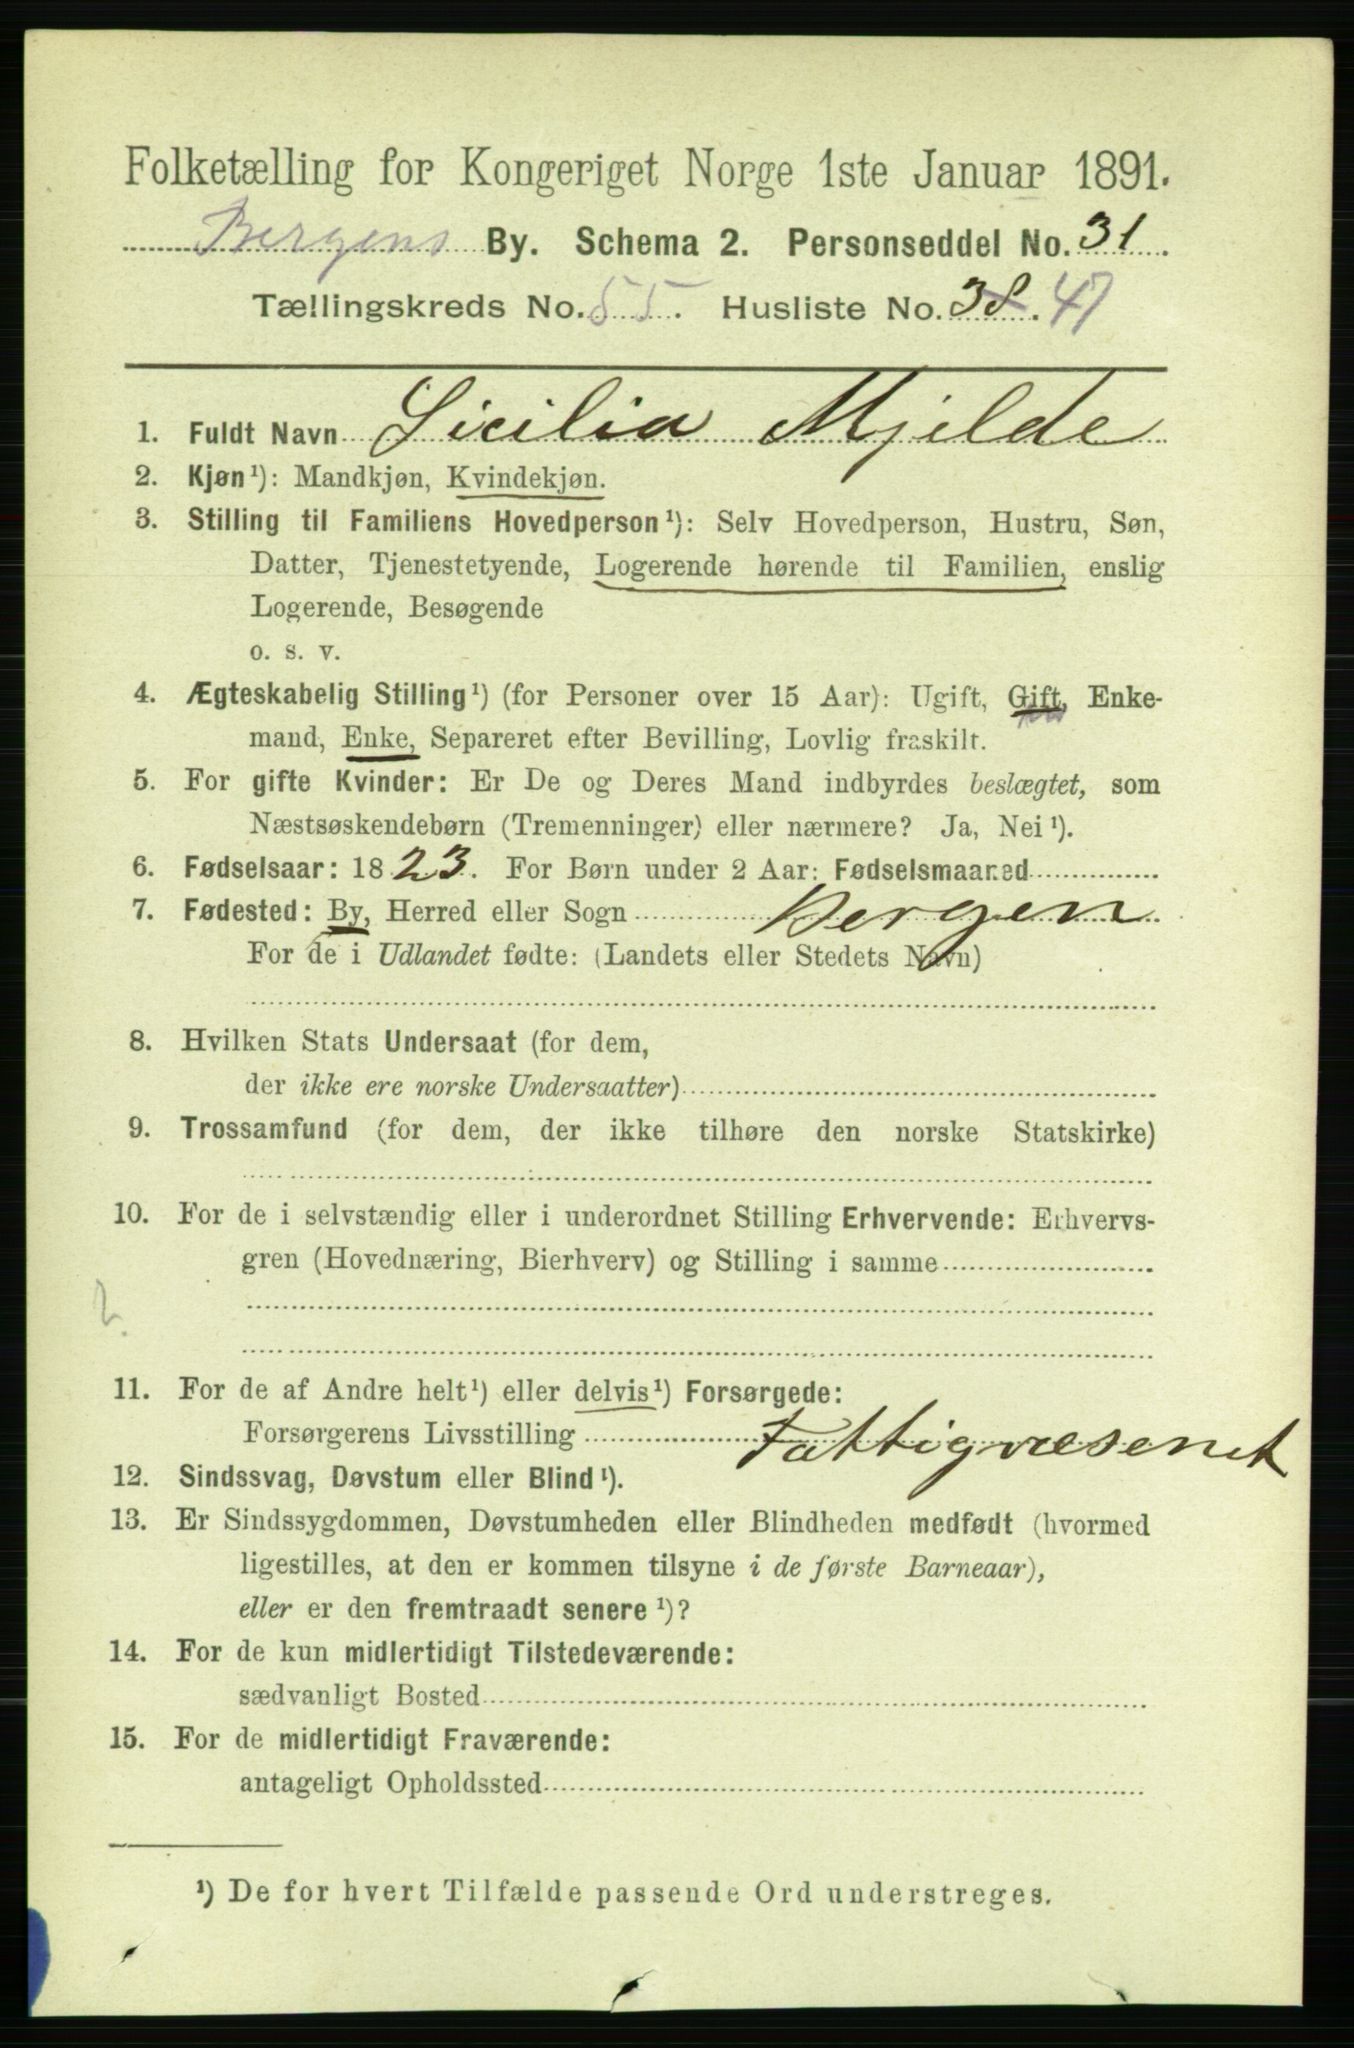 Folketælling for Kongeriget Norge 1ste Januar 1891.
Bergens By. Schema 2. Personseddel No. 31.
Tællingskreds No. 55. Husliste No. 38. 47
1. Fuldt Navn Sicilia Mjelde
2. Kjøn¹): Mandkjøn, Kvindekjøn.
3. Stilling til Familiens Hovedperson¹): Selv Hovedperson, Hustru, Søn,
Datter, Tjenestetyende, Logerende hørende til Familien, enslig
Logerende, Besøgende
o. s. v.
4. Ægteskabelig Stilling¹) (for Personer over 15 Aar): Ugift, Gift, Enke-
mand, Enke, Separeret efter Bevilling, Lovlig fraskilt.
5. For gifte Kvinder: Er De og Deres Mand indbyrdes beslægtet, som
Næstsøskendebørn (Tremenninger) eller nærmere? Ja, Nei¹).
6. Fødselsaar: 1823. For Børn under 2 Aar: Fødselsmaaned
7. Fødested: By, Herred eller Sogn Bergen
For de i Udlandet fødte: (Landets eller Stedets Navn)
8. Hvilken Stats Undersaat (for dem,
der ikke ere norske Undersaatter)
9. Trossamfund (for dem, der ikke tilhøre den norske Statskirke)
10. For de i selvstændig eller i underordnet Stilling Erhvervende: Erhvervs-
gren (Hovednæring, Bierhverv) og Stilling i samme
2.
11. For de af Andre helt¹) eller delvis¹) Forsørgede:
Forsørgerens Livsstilling Fattigvæsenet
12. Sindssvag, Døvstum eller Blind¹).
13. Er Sindssygdommen, Døvstumheden eller Blindheden medfødt (hvormed
ligestilles, at den er kommen tilsyne i de første Barneaar),
eller er den fremtraadt senere¹)?
14. For de kun midlertidigt Tilstedeværende:
sædvanligt Bosted
15. For de midlertidigt Fraværende:
antageligt Opholdssted
¹) De for hvert Tilfælde passende Ord understreges.